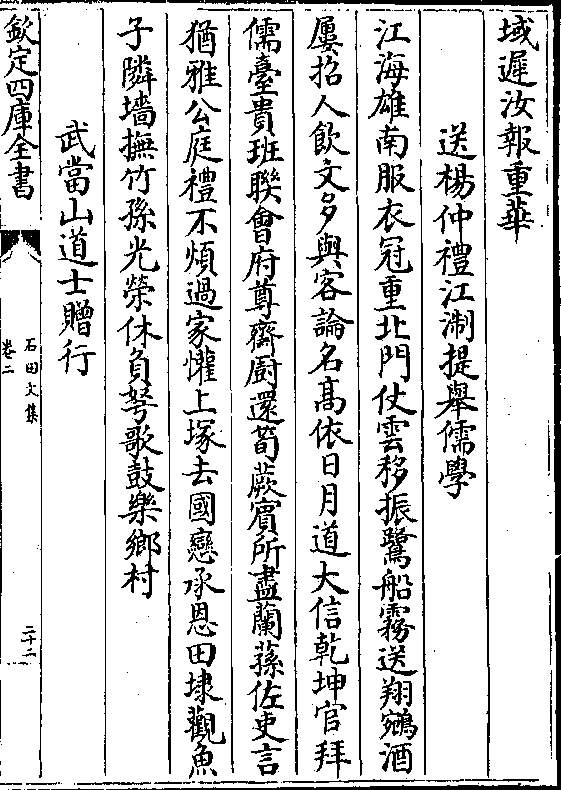 域遲汝報重華
送楊仲禮江淛提舉儒學
江海雄南服衣冠重北門仗雲移振鷺船霧送翔鵷酒
屢招人飲文多與客論名髙依日月道大信乾坤官拜
儒臺貴班聯會府尊齋廚還筍蕨賓所盡蘭蓀佐吏言
猶雅公庭禮不煩過家懽上塚去國戀承恩田埭觀魚
子隣墻撫竹孫光榮休負弩歌鼓樂鄉村
武當山道士贈行
欽定四庫全書
石田文集
卷二
二十二